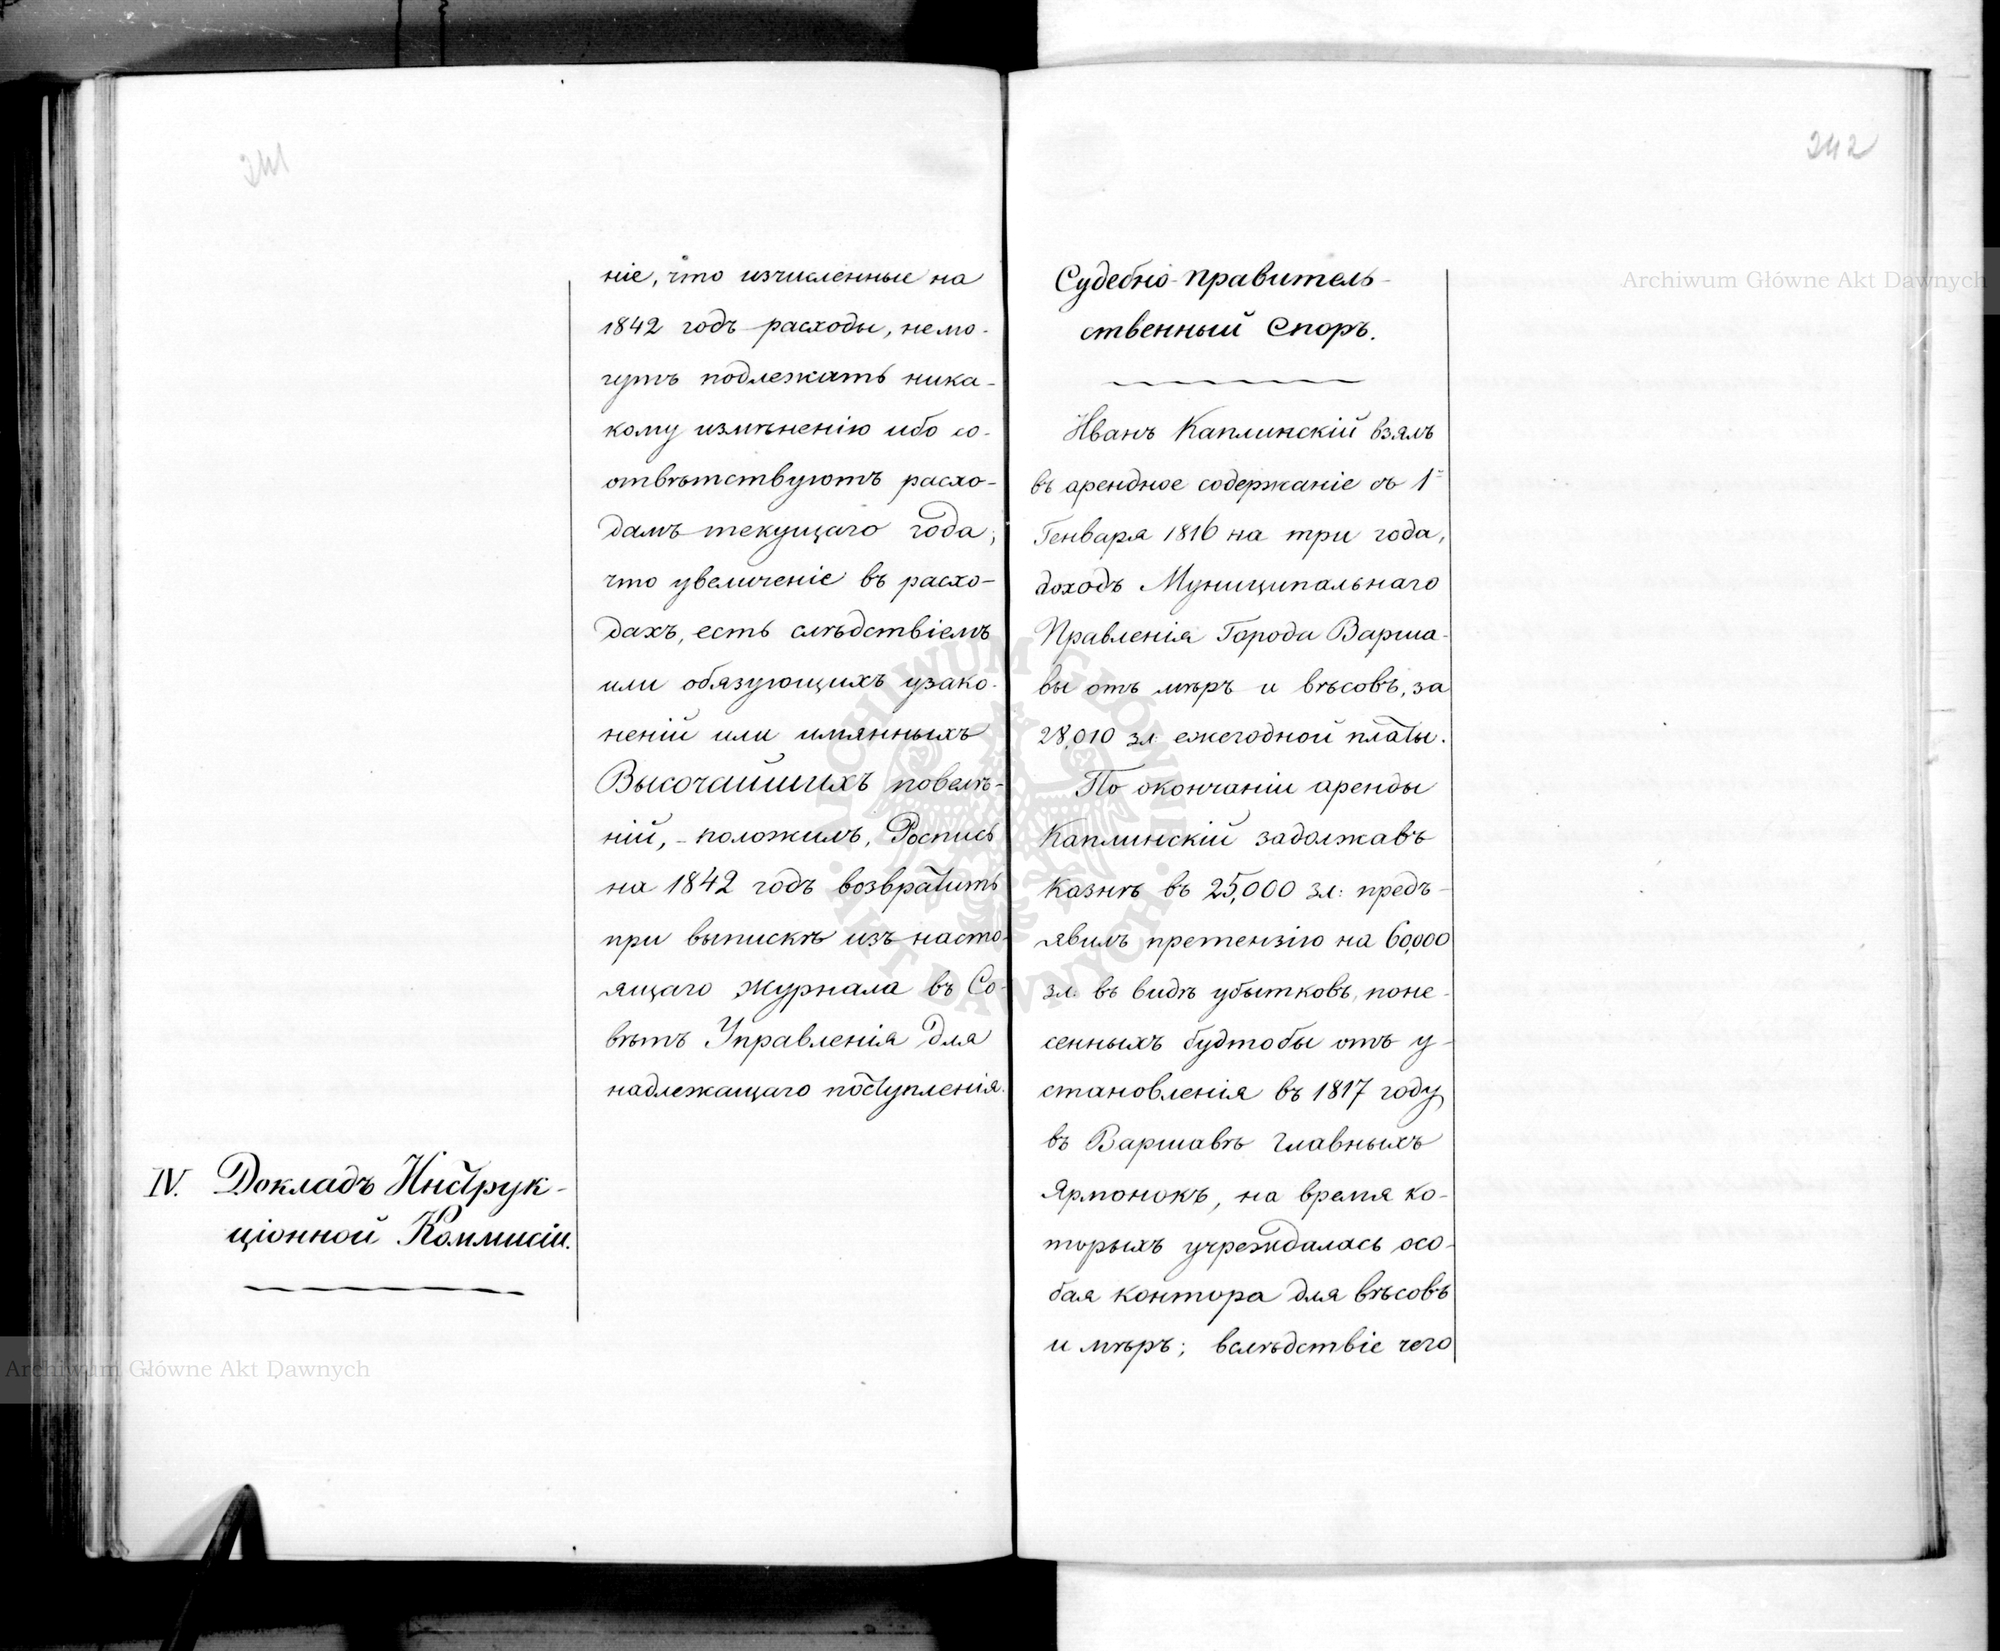 241
ніе, что изчисленные на
1842 годъ расходы, немо-
гутъ подлежать ника-
кому измѣненію ибо со-
отвѣтствуютъ расхо-
дамъ текущаго года;
что увеличеніе въ расхо-
дахъ, есть слѣдствіемъ
или обязующихъ узако-
неній или имянныхъ
Высочайшихъ повелѣ-
ній, - положилъ, Роспись
на 1842 годъ возвратить
при выпискѣ изъ насто-
ящаго журнала въ Со-
вѣтъ Управленія для
надлежащаго поступленія.
IV. Докладъ Инструк-
ціонной Коммисіи.
242
Судебно-правитель-
ственный споръ.
Иванъ Каплинскій взялъ
въ арендное содержаніе съ 1
Генваря 1816 на три года,
доходъ Муниципальнаго
Правленія Города Варша-
вы отъ мѣръ и вѣсовъ, за
28,010 зл: ежегодной платы.
По окончаніи аренды
Каплинскій задолжавъ
Казнѣ въ 25,000 зл: предъ-
явилъ претензію на 60,000
зл. въ видѣ убытковъ, поне-
сенныхъ будтобы отъ у-
становленія въ 1817 году
въ Варшавѣ главныхъ
Ярмонокъ, на время ко-
торыхъ учреждалась осо-
бая контора для вѣсовъ
и мѣръ; вслѣдствіе чего
Archiwum Główne Akt Dawnych
Archiwum Główne Akt Dawnych
ARCHIWUM GŁÓWNE AKT DAWNYCH